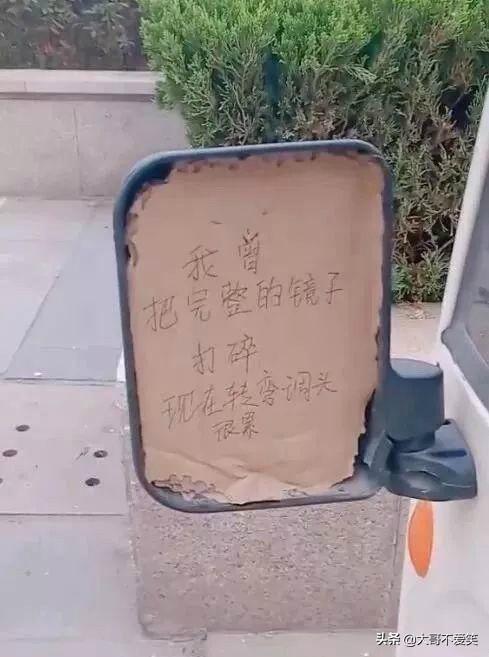 我曾
把完整的镜子
打碎
现在转弯调头
很累
头条 @大哥不爱笑